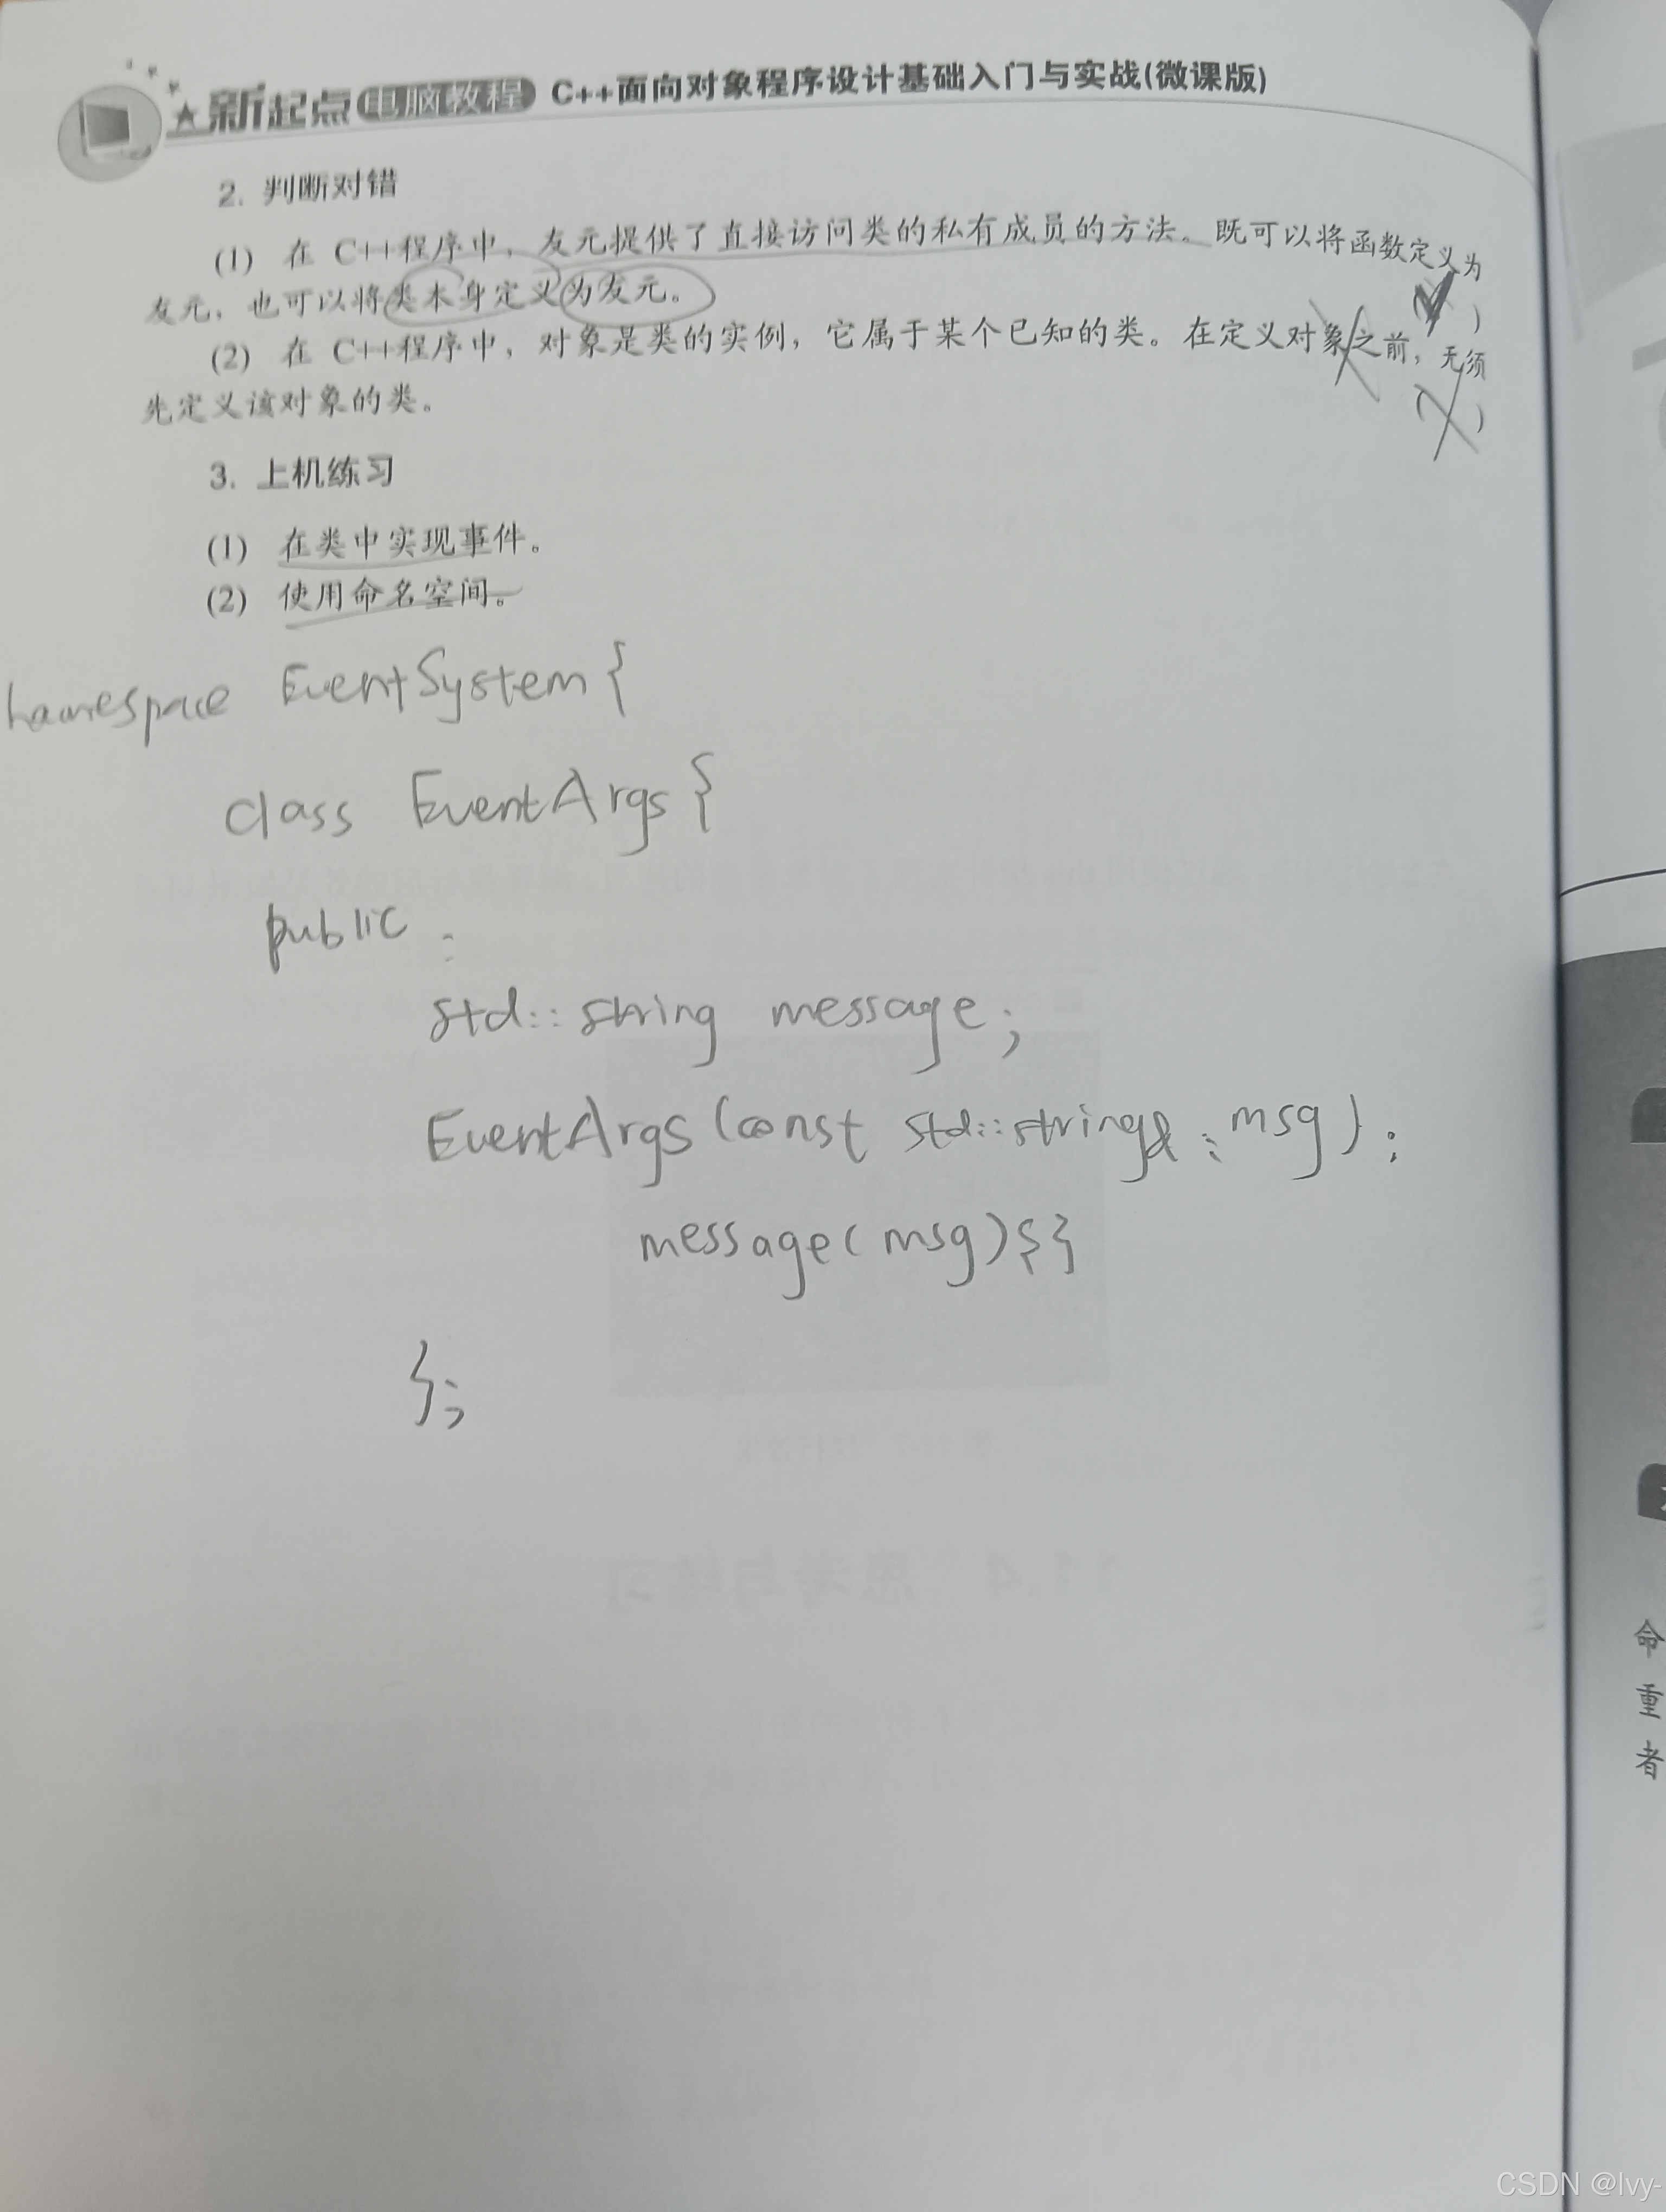 新起点 电脑教程 C++面向对象程序设计基础入门与实战(微课版)
2. 判断对错
(1) 在 C++程序中，友元提供了直接访问类的私有成员的方法。既可以将函数定义为
友元，也可以将类本身定义为友元。 )
(2) 在 C++程序中，对象是类的实例，它属于某个已知的类。在定义对象之前，无须
先定义该对象的类。 ( )
3. 上机练习
(1) 在类中实现事件。
(2) 使用命名空间。
namespace EventSystem {
class EventArgs {
public :
std::string message;
EventArgs (const std::string& : msg) :
message(msg){}
};
命
重
者
CSDN @lvy-